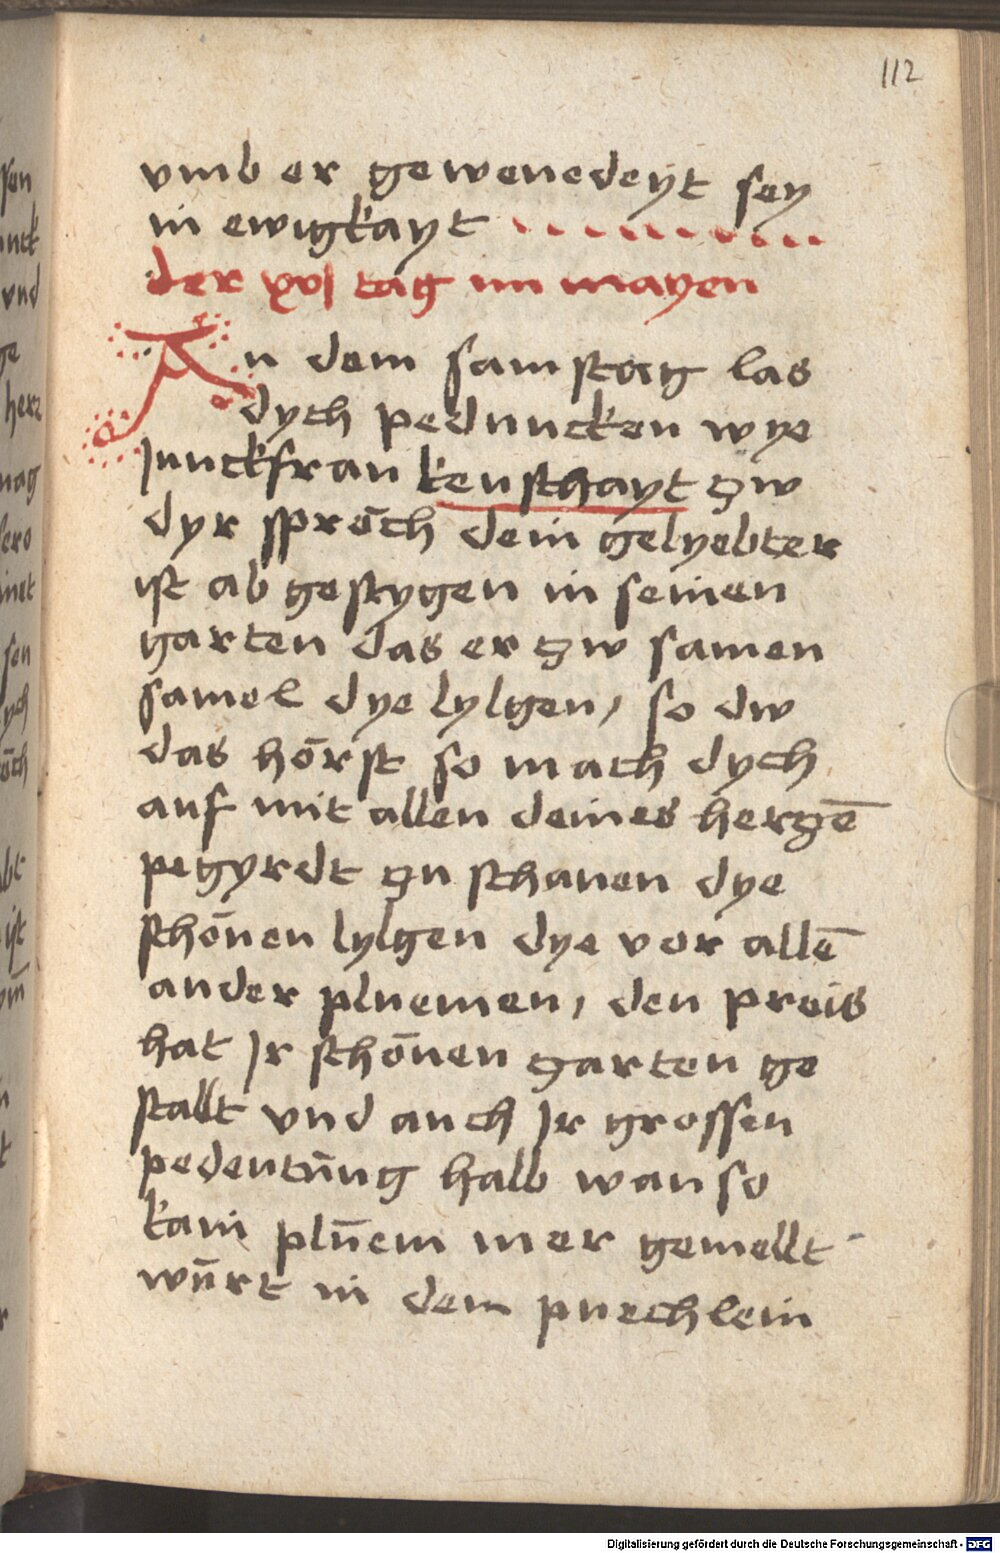 112
vmb er gewenedeyt sey
in ewigkayt
der xvj tag im mayen
An dem samstag las
dych peduncken wye
Junckfrau keuschayt zw
dyr spröch dein gelyebter
ist ab gestygen in seinen
garten das er zw samen
samel dye lylgen, so dw
das hörst so mach dych
auf mit allen deines herzē
pegyrdt zu schauen dye
schönen lylgen dye vor allē
ander pluemen, den preis
hat Jr schönen garten ge
stallt vnd auch Jr grossen
pedeutūng halb wan so
kain plūem mer gemellt
wūrt in dem puechlein
Digitalisierung gefördert durch die Deutsche Forschungsgemeinschaft - DFG